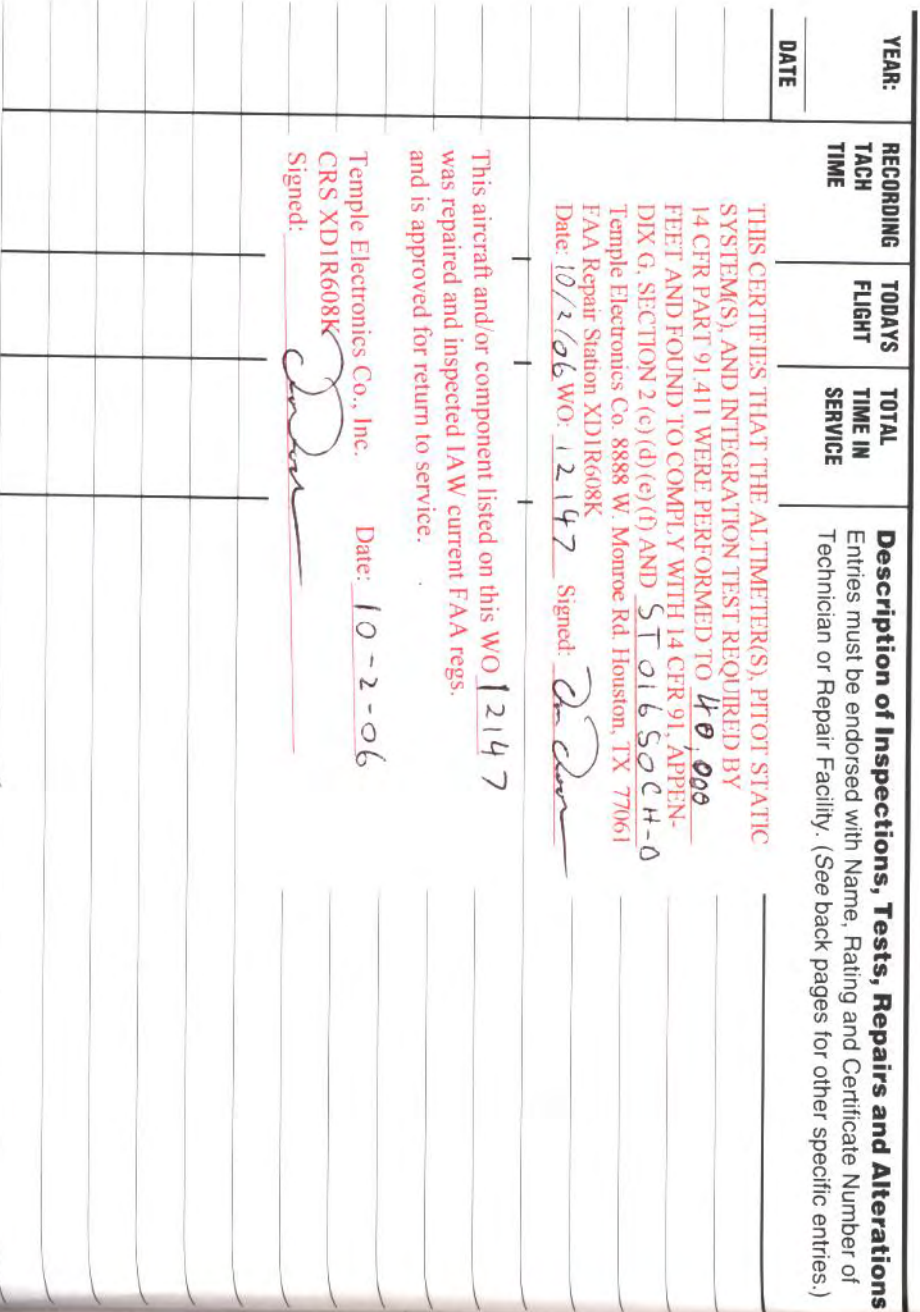 YEAR:
DATE
RECORDING
TACH
TIME
TODAYS
FLIGHT
TOTAL
TIME IN
SERVICE
Description of Inspections, Tests, Repairs and Alterations
Entries must be endorsed with Name, Rating and Certificate Number of
Technician or Repair Facility. (See back pages for other specific entries.)
THIS CERTIFIES THAT THE ALTIMETER(S), PITOT STATIC
SYSTEM(S), AND INTEGRATION TEST REQUIRED BY
14 CFR PART 91.411 WERE PERFORMED TO 40,000
FEET AND FOUND TO COMPLY WITH 14 CFR 91, APPEN-
DIX G, SECTION 2 (c) (d) (e) (f) AND ST01650CH-D
Temple Electronics Co. 8888 W. Monroe Rd. Houston, TX 77061
FAA Repair Station XD1R608K
Date: 10/2/06 WO: 12147 Signed:
This aircraft and/or component listed on this WO 12147
was repaired and inspected IAW current FAA regs.
and is approved for return to service.
Temple Electronics Co., Inc. Date: 10-2-06
CRS XD1R608K
Signed: